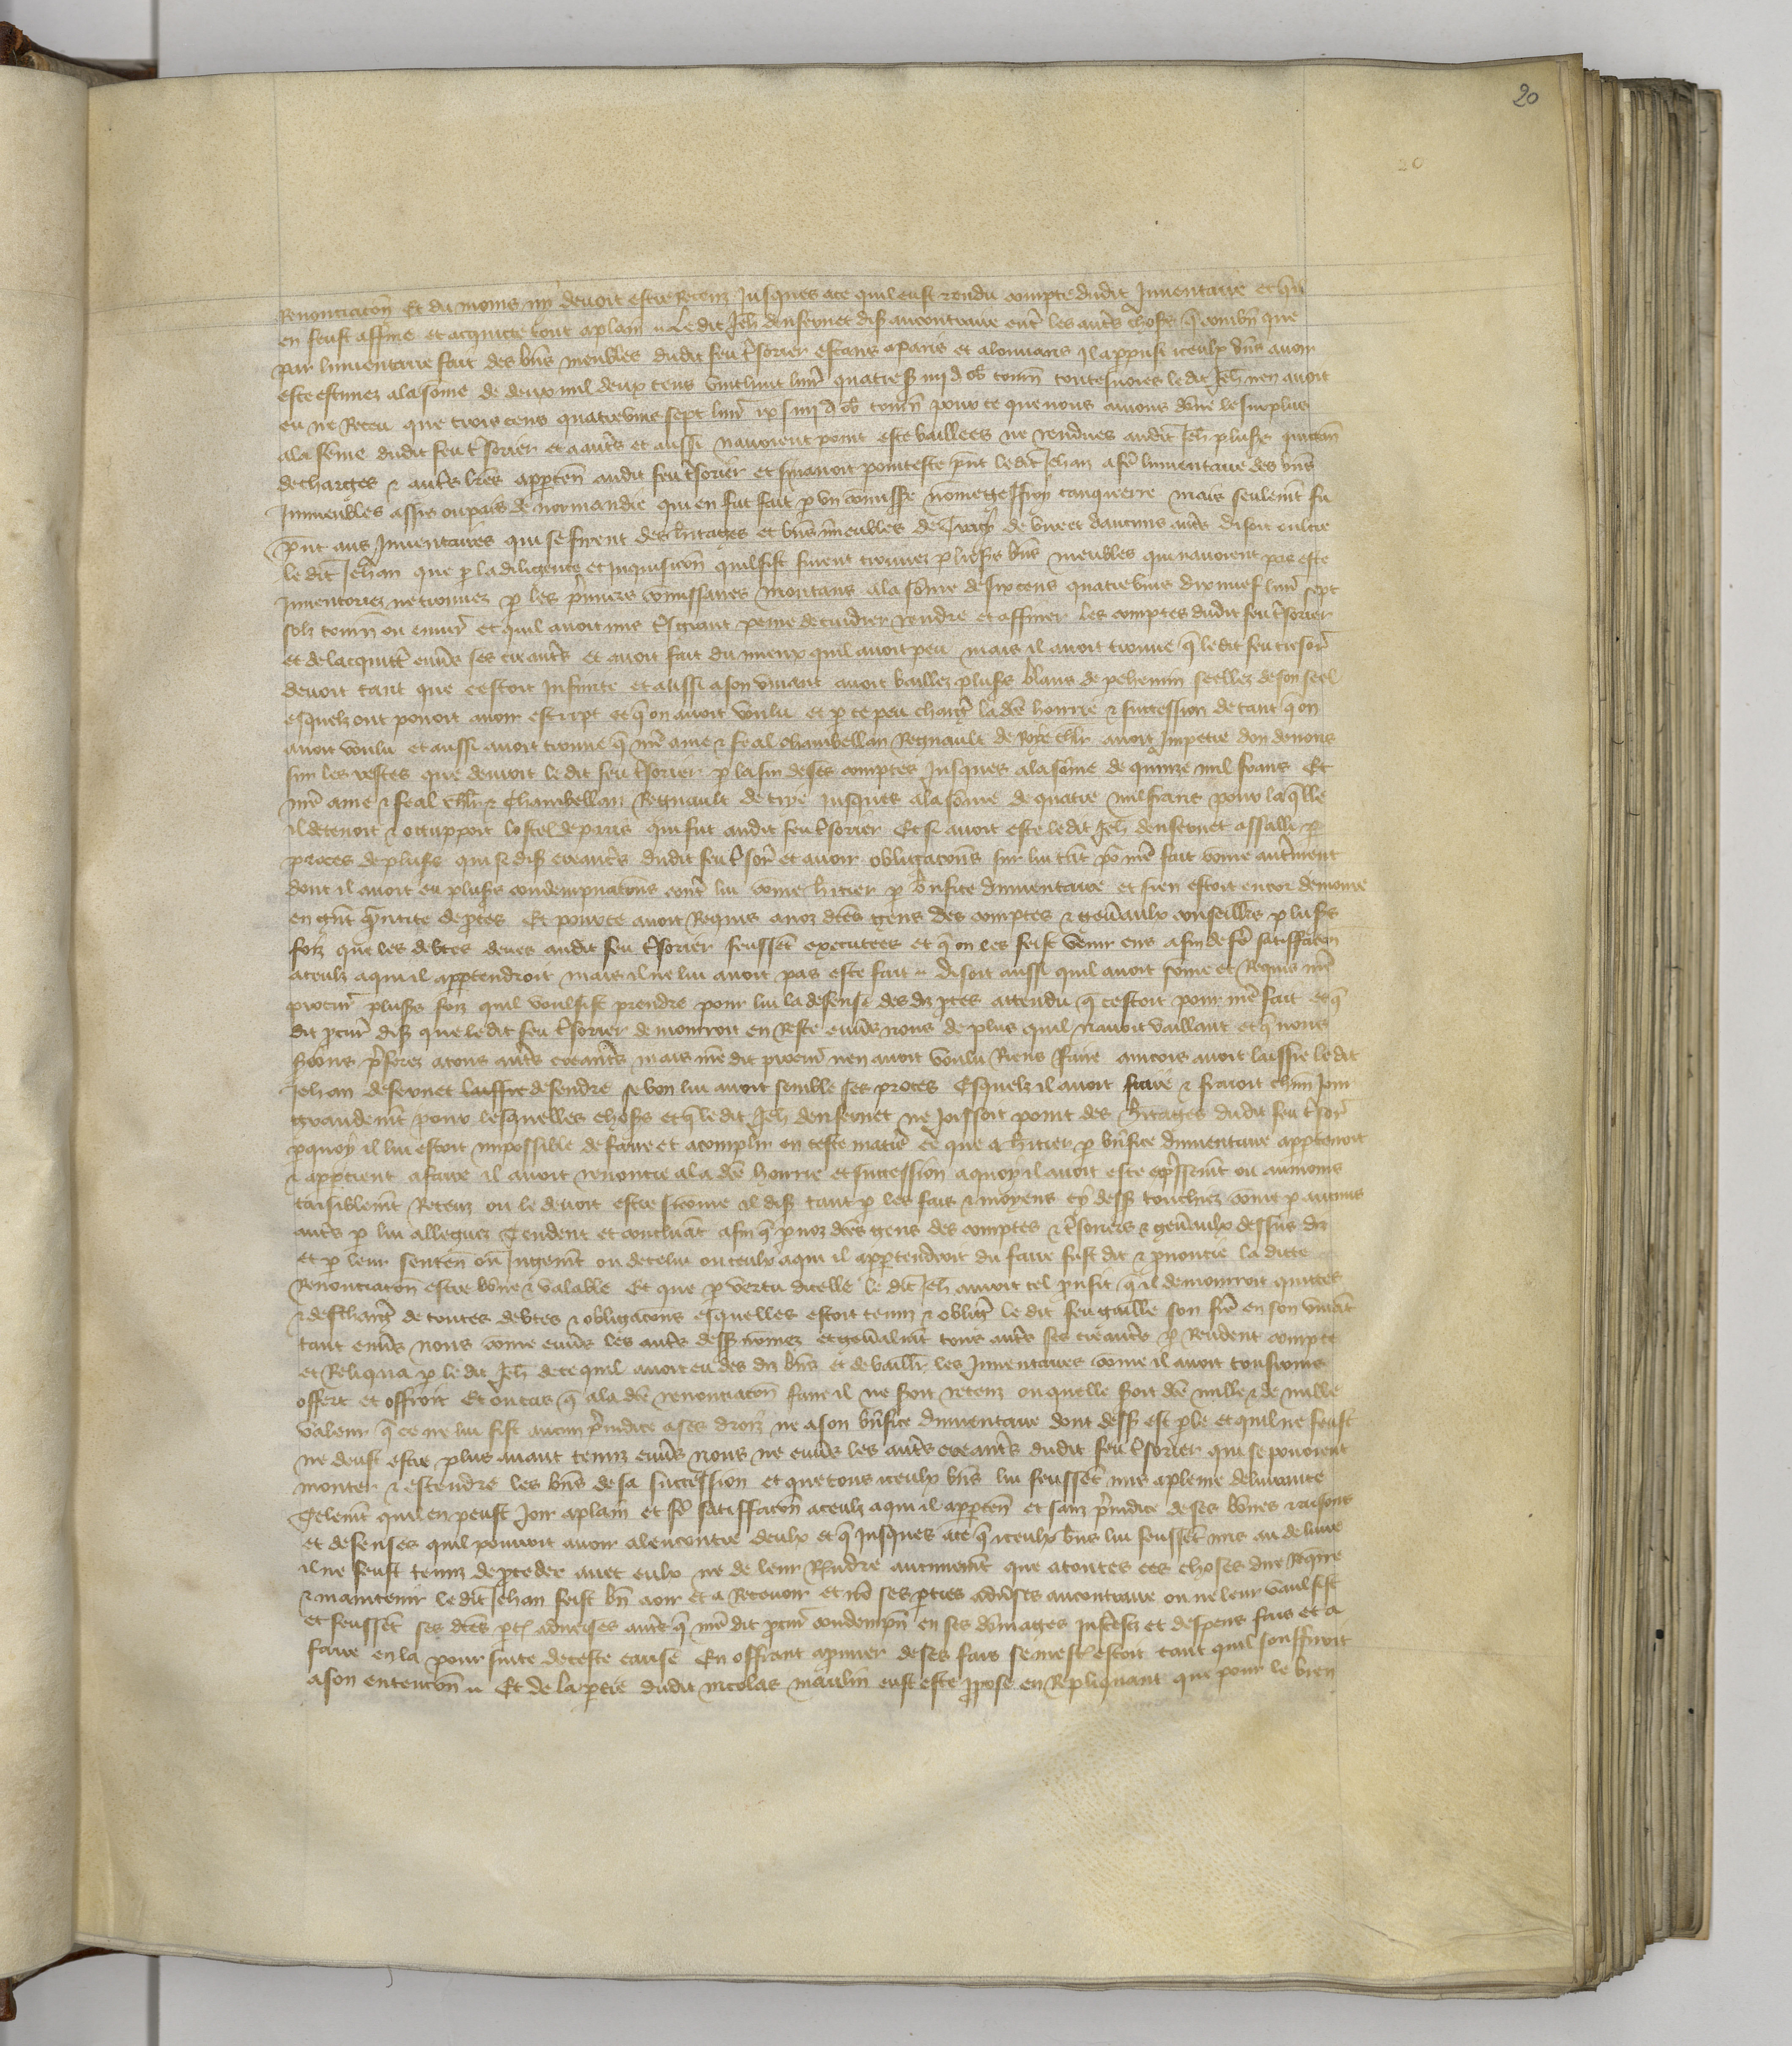 20
20
Renonciacōn Et du moins ny devoit estre Receuz Jusques ace quil eust rendu compte dudit Inventaire et quil
en feust affine et acquicte tout aplain Ledit Jeh̄ denfernet dis̄ aucontraire entr̄ les autr̄s choses q̄ combn̄ que
par linventaire fait des bn̄s meubles dudit feu tr̄sorier estans aparis et alouviers Il apparust iceulx bn̄s avoir
este estimez ala som̄e de deux mil deux cens vinthuit livr̄ quatre s̄ iiij d ob̄ tourn̄ toutesvoies ledit Jeh̄ nen avoit
eu ne Receu que trois cens quatrevins sept livr̄ ix s iiij d ob̄ tourn̄ pour ce que nous avions don̄e le surplus
ala fēme dudit feu tr̄sorier et aautr̄s et aussi navoient point este baillees ne rendues audit Jeh̄ plusr̄s quittan̄
decharges & autr̄s lr̄es apparten̄ audit feu tr̄sorier et si navoit point este p̄nt ledit Jehan afe̅ linventaire des bn̄s
Inmeubles assis ou pais de normandie qui en fut fait p̄ un com̄issre nom̄e geffroy tanquerre mais seulemt̄ fu
p̄nt aus Inventaires qui se firent des heritages et bn̄s inmeubles de Crecy de brie et daucuns autr̄s disoit oultre
ledit Jehan que p̄ la diligence et Inquisicōn quil fist furent trouvez plusr̄s bn̄s meubles qui navoient pas este
Inventoriez ne trouvez p̄ les p̄miers com̄issaires montans ala som̄e de six cens quatrevins dixneuf livr̄ sept
solz tourn̄ ou environ et quil avoit mis tr̄sgrant peine de cuidier rendre et affiner les comptes dudit feu tr̄sorier
et de lacquitter envers ses creantr̄s et avoit fait du mieux quil avoit peu mais il avoit trouve q̄ ledit feu tresor̄
devoit tant que cestoit Infinite et aussi a son vivant avoit baillez plusr̄s blans de pchemin seellez de son seel
esquelz ont povoit avoir escript et q̄ on avoit voulu et p̄ ce peu charger lad̄e hoirrie & succession de tant q̄ on
avoit voulu et aussi avoit trouve q̄ nr̄e ame & feal chambellan Regnault de Roye chlr̄ avoit Impetre don de nous
sur les restes que devoit ledit feu tr̄sorier p̄ la fin de ses comptes Jusques ala som̄e de quinze mil frans Et
nr̄e ame & feal chlr̄ & Chambellan Regnault de trye jusques ala som̄e de quatre mil frans pour laq̄lle
il detenoit & occuppoit lostel de paris qui fut audit feu tr̄sorier Et si avoit este ledit Jeh̄ denfernet assailli p̄
proces de plusr̄s qui se dis̄ creantr̄s dudit feu tr̄sor̄ et avoir obligacōns sur lui tāt po̅ nr̄e fait com̄e autremt̄
dont il avoit eu plusr̄s condempnacōns contr̄ lui com̄e heritier p̄ benefice dinventaire et sien estoit encor demoure
en gn̄t quantite de proces Et pource avoit Requis anoz dc̄es gens des comptes & gen̄aulx conseillr̄s plusr̄s
foiz que les debtes deues audit feu tr̄sorier feussēt executees et q̄ on les feist venir ens afin de fe̅ satiffacōn
aceulz aqui il appartendroit mais il ne lui avoit pas este fait Disoit aussi quil avoit som̄e et Requis nr̄e
procur̄ plusr̄s foiz quil voulsist prendre pour lui la defense des diz proces attendu q̄ cestoit pour nr̄e fait et q̄
dit p̄cur̄ dis̄ que ledit feu tr̄sorier demouroit en Reste envers nous de plus quil navoit vaillant et q̄ nous
serions p̄ferez atous autr̄s creantr̄s mais nr̄e dit procur̄ nen avoit voulu Riens faire aincois avoit laissie ledit
Jehan denfernet laissie defendre se bon lui avoit semble ses proces Esquelz il avoit fraie & fraioit chun̄ jour
grandemt̄ pour lesquelles choses et q̄ ledit Jeh̄ denfernet ne joissoit point des heritages dudit feu tr̄sor̄
p̄quoy il lui estoit impossible de faire et acomplir en ceste matire ce que a heritier p̄ bn̄fice dinventaire appartenoit
& appartient afaire il avoit renoncie ala dc̄e hoirrie et succession aquoy il avoit este expressemt̄ ou aumoins
taisiblemt̄ Receuz ou le devoit estre sicom̄e il dis̄ tant p̄ les fais & moyens cy dess̄ touchez com̄e p̄ aucuns
autr̄s p̄ lui alleguez Tendent et concluāt afin q̄ p̄ noz dc̄es gens des comptes & tr̄soriers & gen̄aulx dessus diz
et p̄ leur senten̄ ou Jugemt̄ ou de celui ou ceulx aqui il appartendroit du faire fust dit & p̄noncie la dicte
Renonciacōn estre bon̄e & valable Et que p̄ vertu dicelle le dit Jeh̄ avoit tel prufit q̄ il demourroit quittes
& deschargez de toutes debtes & obligacōns esquelles estoit tenuz & obligez le dit feu guille son frē en son vivāt
tant envers nous com̄e envers les autr̄s dess̄ nom̄ez et gen̄alemt̄ tous autr̄s ses creantr̄s p̄ Rendent compte
et Reliqua p̄ le dit Jeh̄ de ce quil avoit eu des diz bn̄s et de baillr̄ les Inventaires com̄e il avoit tousjours
offert et offroit Et ou cas q̄ ala dc̄e renonciacōn faire il ne seroit receuz ou quelle seroit dc̄e nulle & de nulle
valeur q̄ ce ne lui fist aucun p̄judice ases droiz ne a son bn̄fice dinventaire dont dess̄ est p̄le et quil ne feust
ne deust estre plus avant tenuz envers nous ne envers les autr̄s creantr̄s dudit feu tr̄sorier qui se povoient
monter & estendre les bn̄s de sa succession et que tous iceulx bn̄s lui feussēt mis apleine delivrance
Telemt̄ quil en peust joir aplain et fe̅ satiffacōn aceulz aqui il apparten̄ et sanz p̄judice de ses bon̄es raisons
et defenses quil pouroit avoir alencontre deulx et q̄ jusques ace q̄ iceulx bn̄s lui feussēt mis au delivre
il ne feust tenuz de p̄ceder avec eulx ne de leur Respondre aucunemt̄ que atoutes ces choses dire Requerre
& maintenir ledit Jehan feist bn̄ aoir et a Recevoir et nō ses p̄ties adverses aucontraire ou ne leur vaulsist
et feussēt ses dc̄es p̄ties adverses autr̄s q̄ nr̄e dit p̄cur̄ condempn̄ en ses dom̄ages Interestz et despens fais et a
faire en la poursuite de ceste cause En offrant aprouver de ses fais se mestr̄ estoit tant quil souffiroit
a son entencōn Et de la p̄tie dudit nicolas mauvin eust este p̄pose en Repliquant que pour le bien